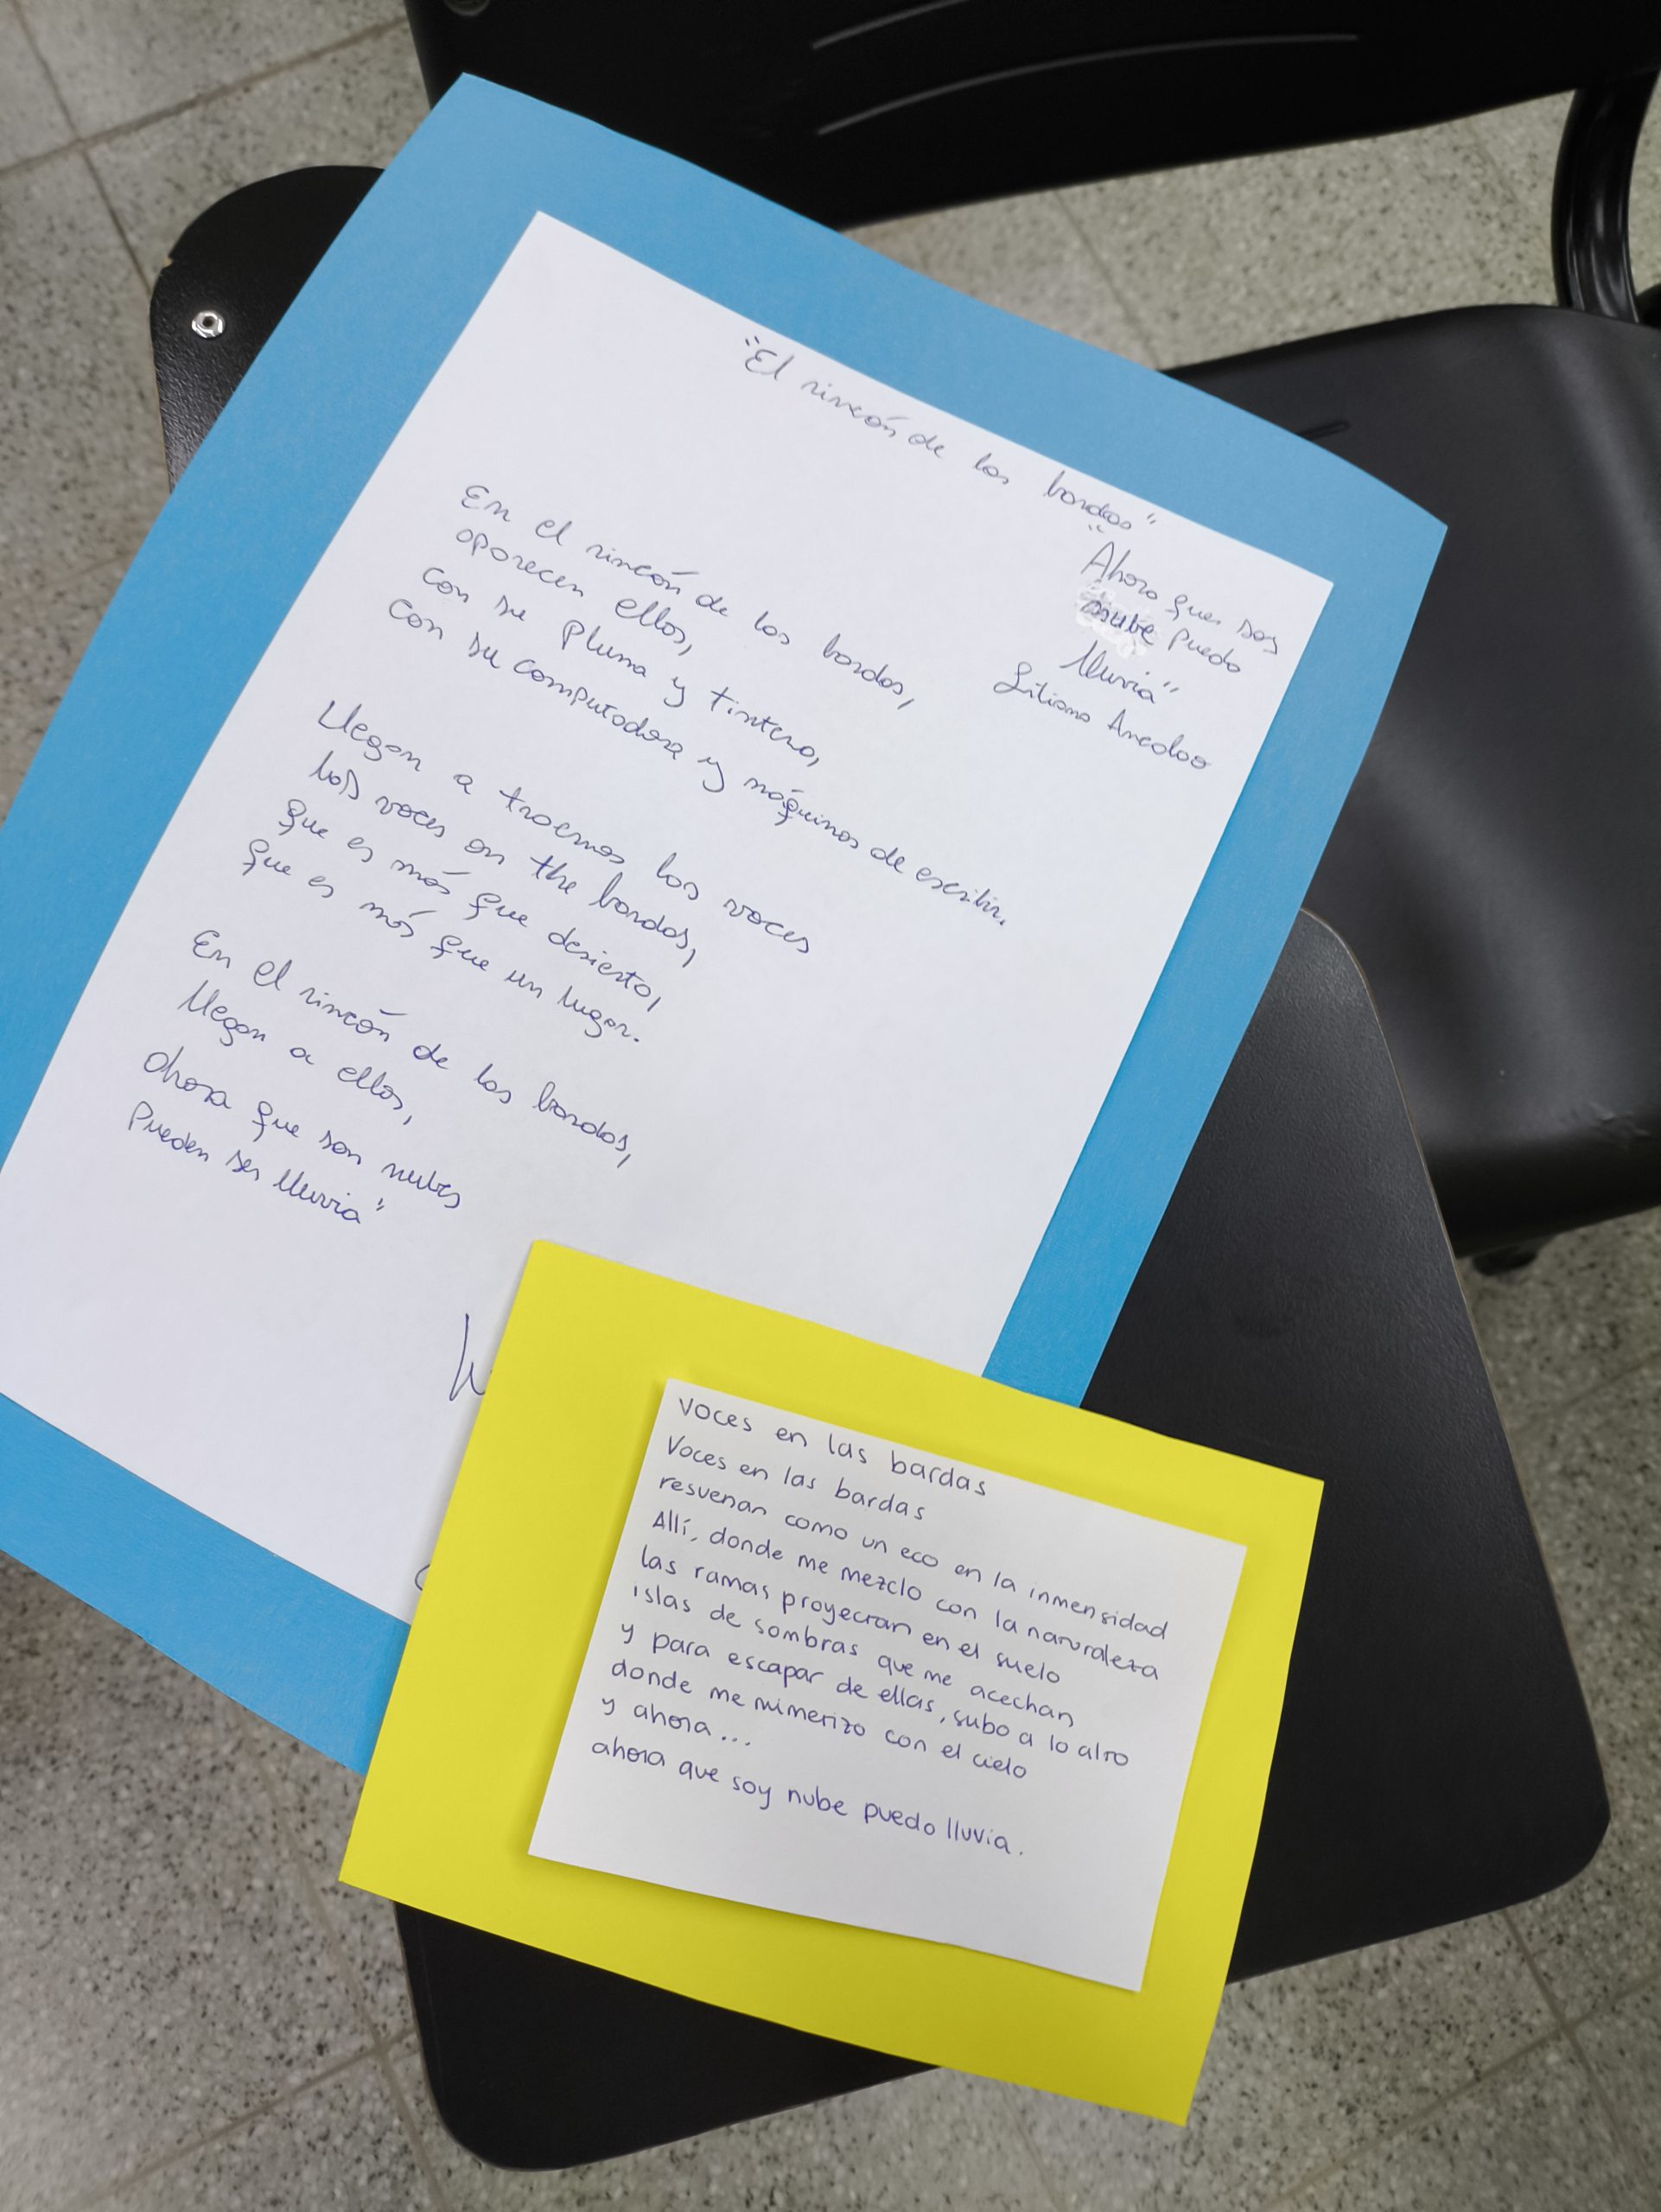 "El rincón de las bardas"
"Ahora que sos
nube puedo
lluvia"
Liliana Ancalao
En el rincón de las bardas,
aparecen ellos,
con su pluma y tintero,
con su computadora y máquinas de escribir.
Llegan a traernos las voces
las voces on the bardas,
que es más que desierto,
que es más que un lugar.
En el rincón de las bardas,
llegan a ellos,
ahora que son nubes
pueden ser lluvia"
voces en las bardas
Voces en las bardas
resuenan como un eco en la inmensidad
Allí, donde me mezclo con la naturaleza
las ramas proyectan en el suelo
islas de sombras que me acechan
y para escapar de ellas, subo a lo alto
donde me mimetizo con el cielo
y ahora...
ahora que soy nube puedo lluvia.